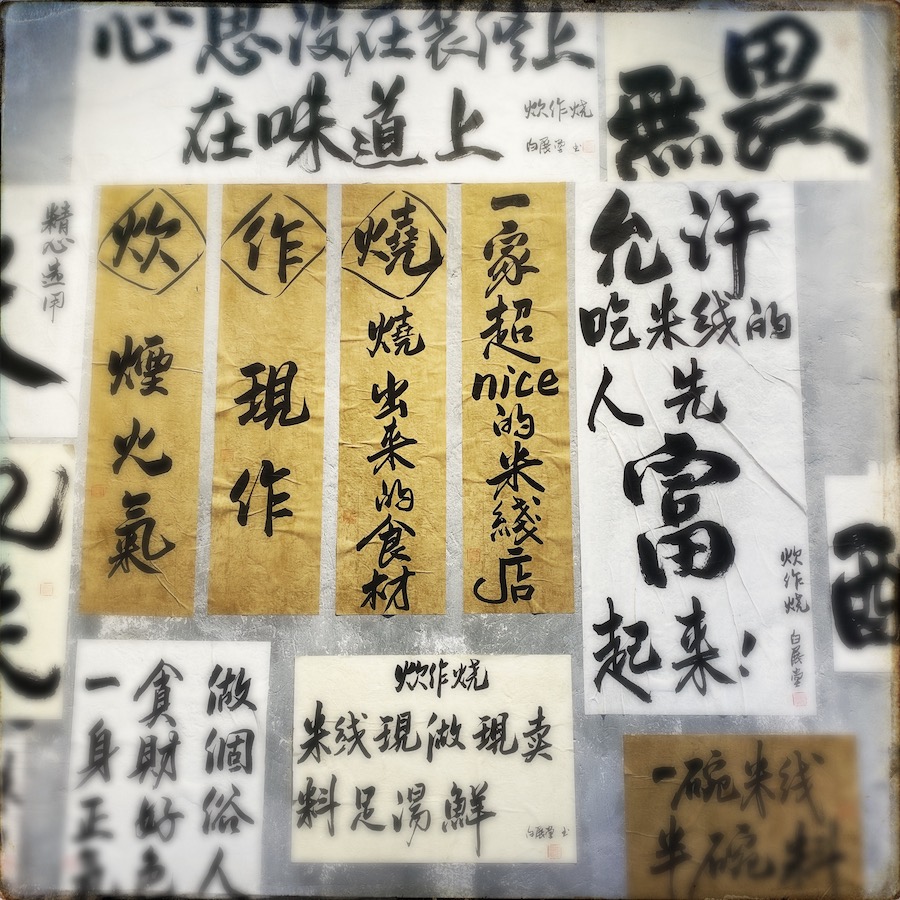 心思没在装修上
在味道上
炊作烧
白展堂 书
無畏
精心选用
炊 煙火氣
作 現作
燒 燒出来的食材
一家超nice的米綫店
允许
吃米线的
人先
富
起来!
炊作烧 白展堂
做個俗人
貪財好色
一身正氣
炊作烧
米线現做現卖
料足湯鮮
白展堂 书
一碗米线
半碗料